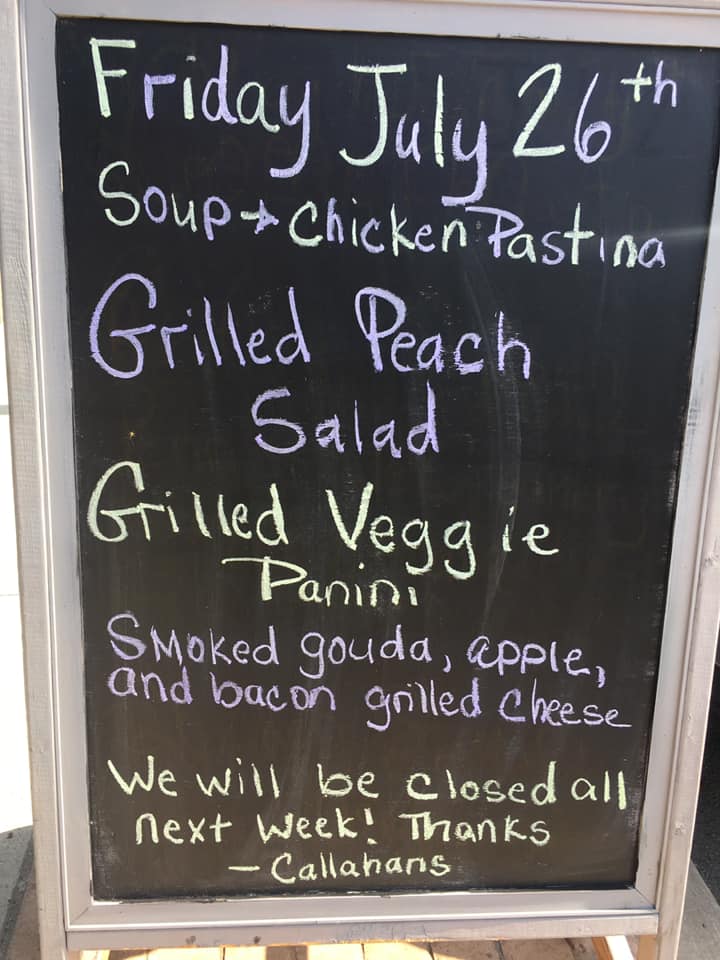 Friday July 26th
Soup → Chicken Pastina
Grilled Peach
Salad
Grilled Veggie
Panini
Smoked gouda, apple,
and bacon grilled cheese
We will be closed all
next week! Thanks
- Callahans